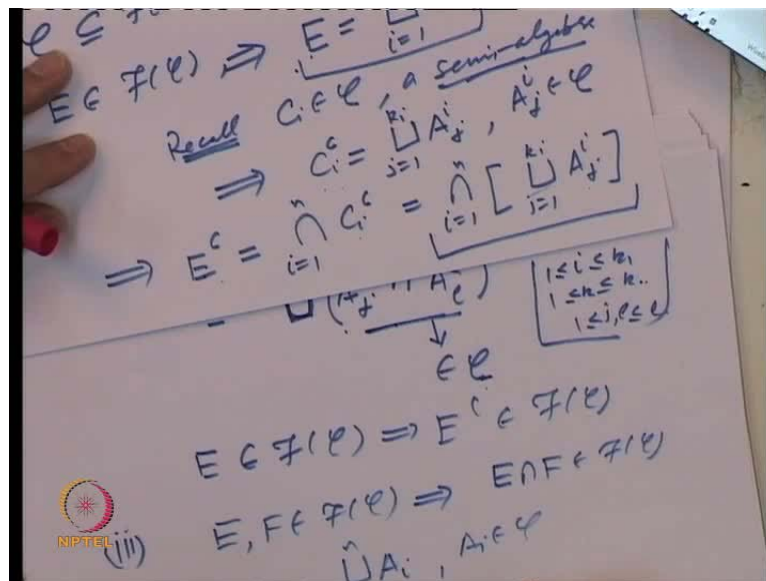 C ⊆ F(
E ∈ F(C) ⇒ E = ⊔ i=1
Recall C_i ∈ C, a semi-algebra
⇒ C_i^c = ⊔_{j=1}^{k_i} A_j^i, A_j^i ∈ C
⇒ E^c = ∩_{i=1}^{n} C_i^c = ∩_{i=1}^{n} [ ⊔_{j=1}^{k_i} A_j^i ]
1 ≤ i ≤ k_1
1 ≤ k ≤ k..
1 ≤ j, l ≤
↓
∈ C
E ∈ F(C) ⇒ E^c ∈ F(C)
(iii) E, F ∈ F(C) ⇒ E ∩ F ∈ F(C)
⊔^n A_i, A_i ∈ C
NPTEL